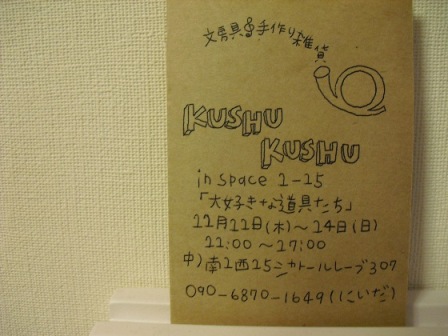 文房具&手作り雑貨
KUSHU
KUSHU
in space 1-15
「大好きな道具たち」
11月11日(木)〜14日(日)
11:00〜17:00
中)南1西15シャトールレーブ307
090-6870-1649(にいだ)